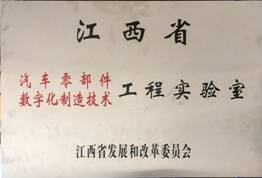 江西省
汽车零部件
数字化制造技术
工程实验室
江西省发展和改革委员会